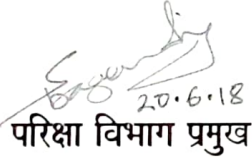 20.6.18
परिक्षा विभाग प्रमुख